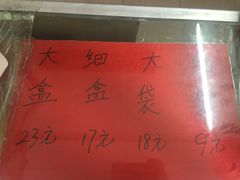 大盒23元
细盒17元
大袋18元
9元